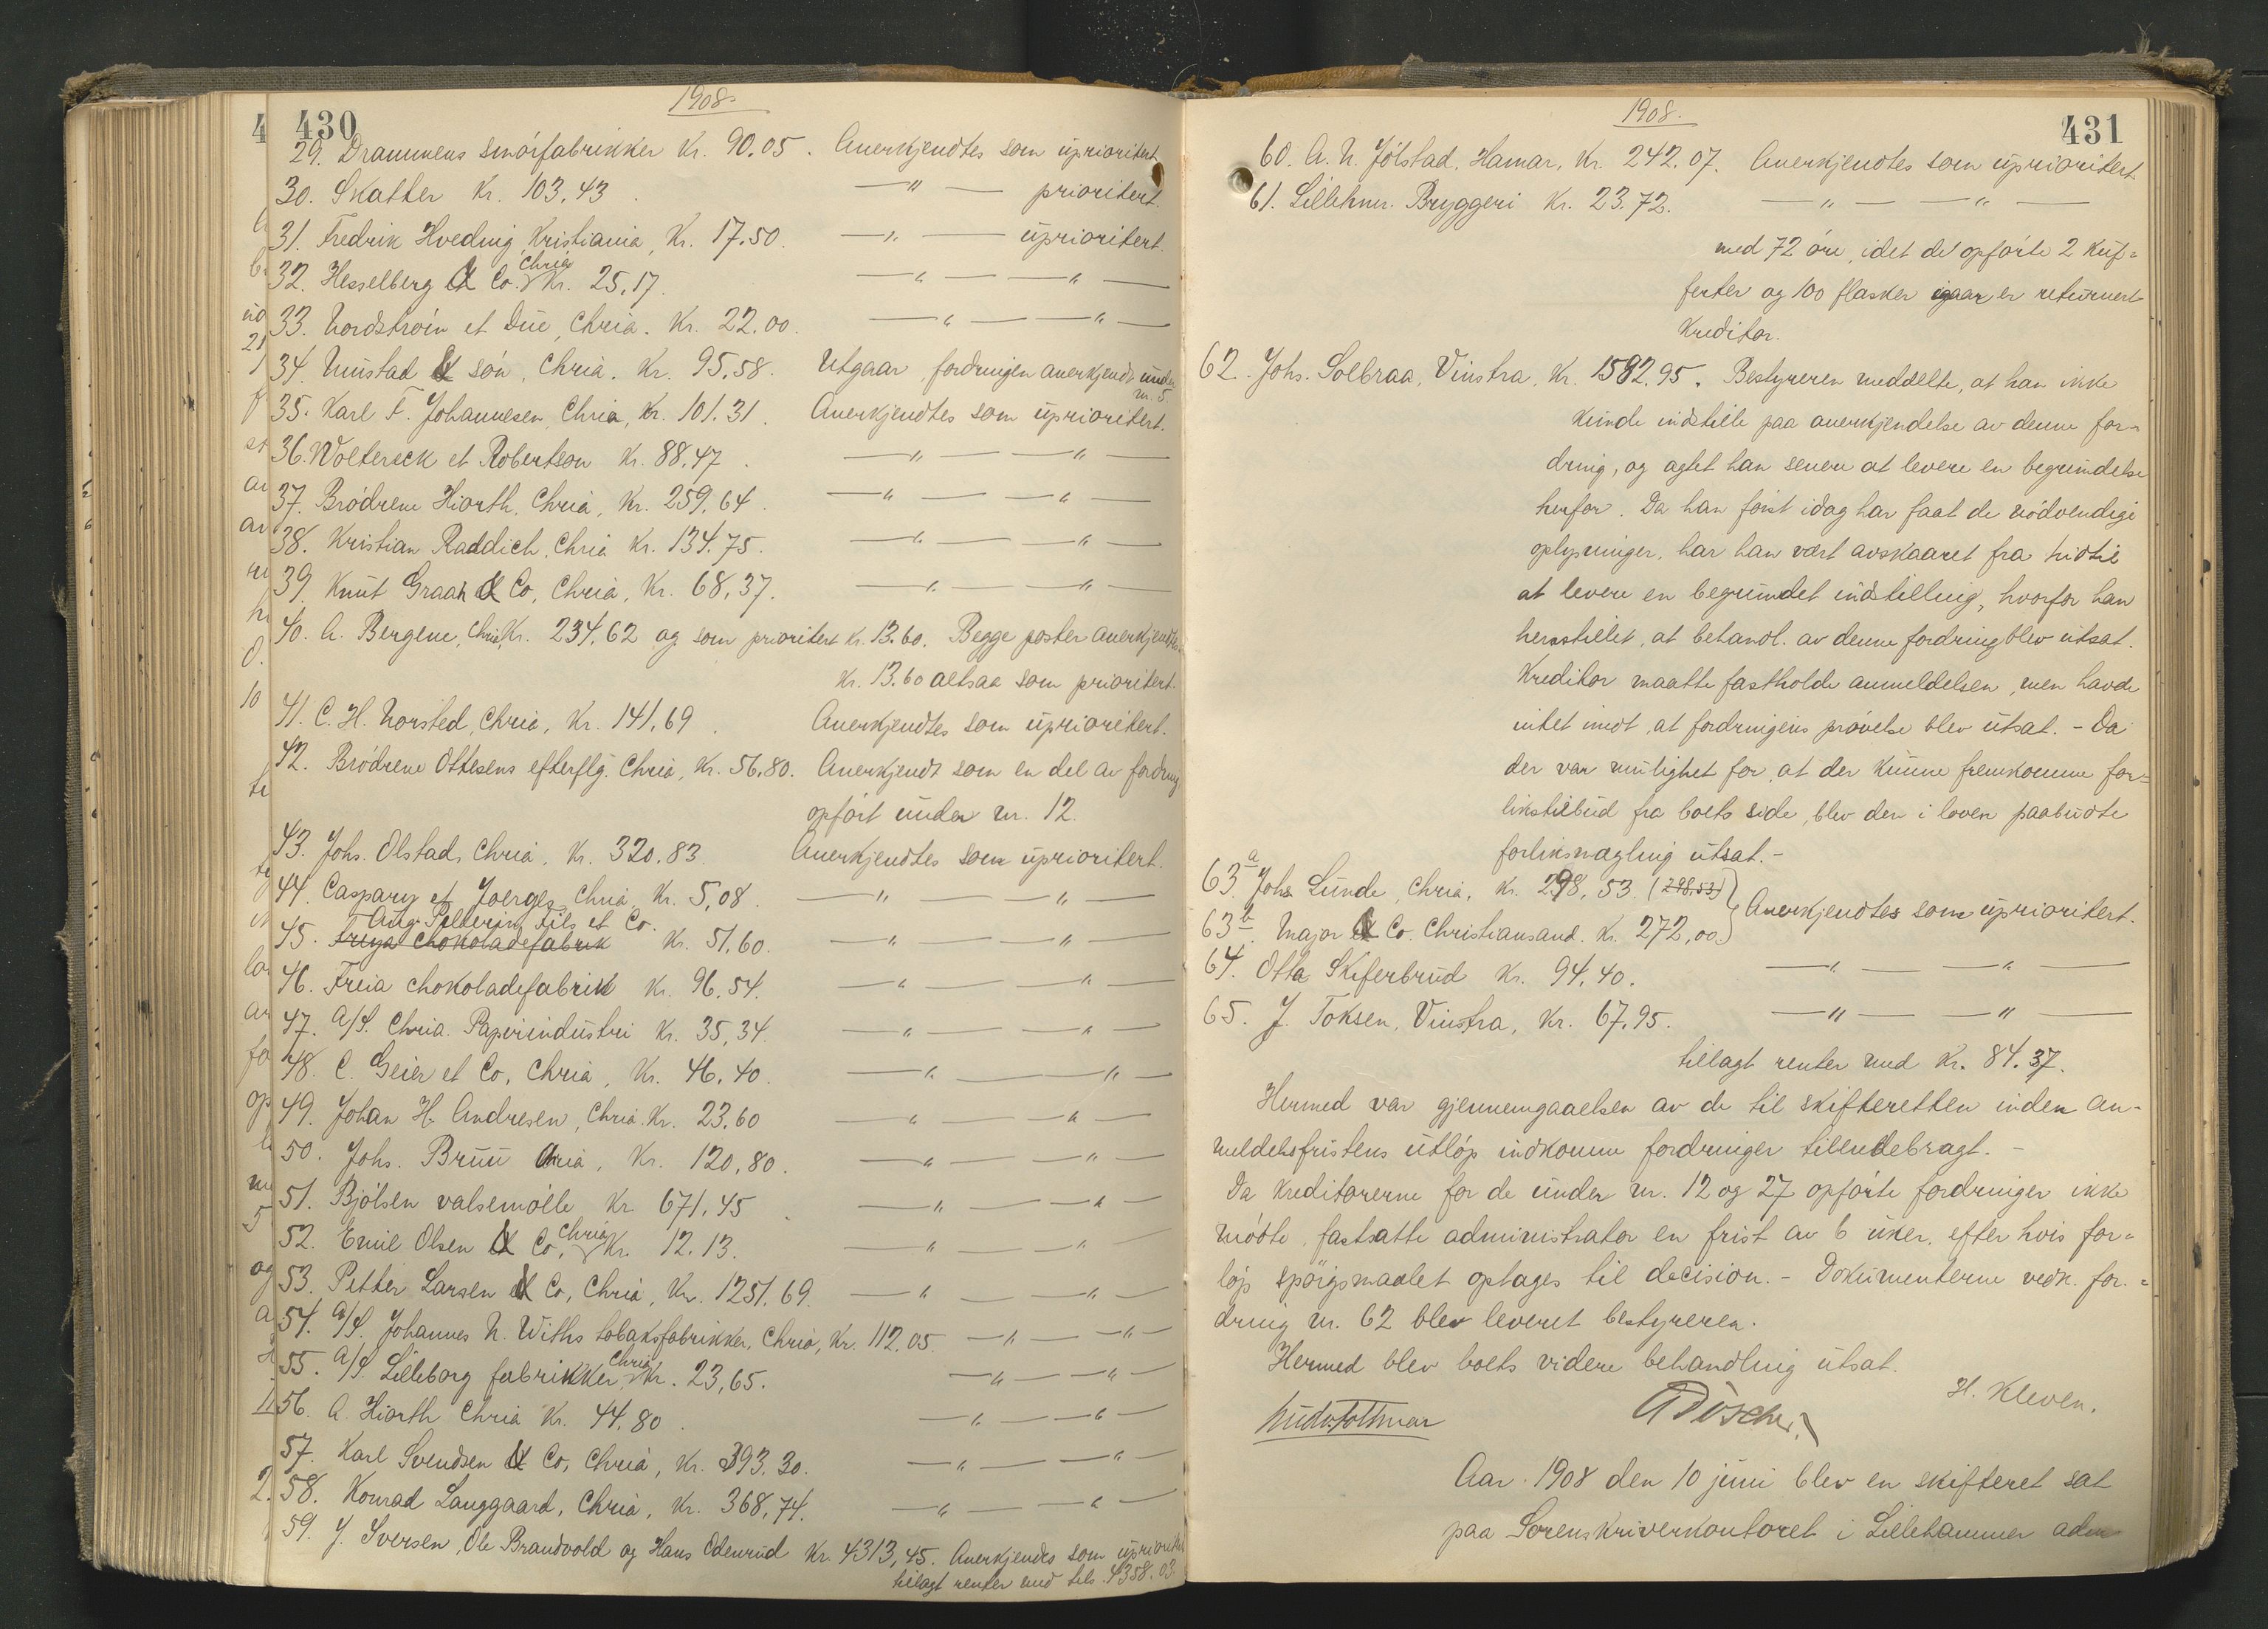 430
1908.
29. Drammens smörfabrikker Kr. 90.05. Anerkjendtes som uprioritert
30. Skatter Kr. 103.43. —"— prioritert.
31. Fredrik Hveding, Kristiania, Kr. 17.50. —"— uprioritert.
32. Hesselberg & Co. Chria Kr. 25.17. —"— —"—
33. Nordström et Due, Chria. Kr. 22.00. —"— —"—
34. Mustad & sön, Chria. Kr. 95.58. Utgaar, fordringen anerkjendt under nr. 5.
35. Karl F. Johannesen, Chria, Kr. 101.31. Anerkjendtes som uprioritert.
36. Woltereck et Robertson Kr. 88.47. —"— —"—
37. Brödrene Hiorth, Chria, Kr. 259.64. —"— —"—
38. Kristian Raddich, Chria Kr. 134.75. —"— —"—
39. Knut Graah & Co, Chria, Kr. 68.37. —"— —"—
40. A. Bergene, Chria, Kr. 234.62 og som prioritert Kr. 13.60. Begge poster anerkjendtes
Kr. 13.60 altsaa som prioritert.
41. C. H. Norsted, Chria, Kr. 141.69. Anerkjendtes som uprioritert.
42. Brödrene Ottesens efterflg. Chria, Kr. 56.80. Anerkjendt som en del av fordring
opfört under nr. 12.
43. Johs. Olstad, Chria. Kr. 320.83. Anerkjendtes som uprioritert.
44. Caspary et Joerges, Chria, Kr. 5,08. —"— —"—
Aug. Pellerin fils et Co.
45. Freya chokoladefabrik Kr. 51.60. —"— —"—
46. Freia chokoladefabrik Kr. 96.54. —"— —"—
47. A/S. Chria. Papirindustri Kr. 35,34. —"— —"—
48. C. Geier et Co, Chria, Kr. 46.40. —"— —"—
49. Johan H. Andresen, Chria. Kr. 23.60 —"— —"—
50. Johs. Bruu Chria, Kr. 120,80. —"— —"—
51. Bjölsen valsemölle Kr. 671.45. —"— —"—
52. Emil Olsen & Co, Chria Kr. 12.13. —"— —"—
53. Petter Larsen & Co, Chria, Kr. 1251.69. —"— —"—
54. A/S. Johannes N. Withs tobaksfabrikker, Chria, Kr. 112.05. —"— —"—
55. A/S. Lilleborg fabrikker, Chria Kr. 23,65. —"— —"—
56. A. Hiorth Chria Kr. 44.80. —"— —"—
57. Karl Svendsen & Co, Chria, Kr. 393.30. —"— —"—
58. Konrad Langgaard, Chria, Kr. 368,74. —"— —"—
59. J. Iversen, Ole Brandvold og Hans Odenrud Kr. 4313,45. Anerkjendes som uprioritert
tillagt renter med tils. 4358.03
1908.
431
60. A. N. Jölstad, Hamar, Kr. 242.07. Anerkjendtes som uprioritert.
61. Lillehmr. Bryggeri Kr. 23.72. —"— —"—
med 72 öre, idet de opförte 2 kuf-
ferter og 100 flasker igaar er returnert
Kreditor.
62. Johs. Solbraa, Vinstra, Kr. 1582.95. Bestyreren meddelte, at han ikke
kunde indstille paa anerkjendelse av denne for-
dring, og agtet han senere at levere en begrundelse
herfor. Da han först idag har faat de nödvendige
oplysninger, har han vært avskaaret fra hidtil
at levere en begrundet indstilling, hvorfor han
henstillet, at behandl. av denne fordring blev utsat.
Kreditor maatte fastholde anmeldelsen, men havde
intet imot, at fordringens prövelse blev utsat. - Da
der var mulighet for, at der kunne fremkomme for-
likstilbud fra boets side, blev den i loven paabudte
forliksmægling utsat. -
63a. Johs Lunde, Chria, Kr. 298,53. (298.53) Anerkjendtes som uprioritert.
63b. Major & Co. Christiansand. Kr. 272,00.
64. Otta Skiferbrud Kr. 94.40. —"— —"—
65. J. Toksen, Vinstra, Kr. 67.95. —"— —"—
tillagt renter med Kr. 84.37.
Hermed var gjennemgaaelsen av de til skifteretten inden an-
meldelsfristens utlöp indkomne fordringer tilendebragt. -
Da Kreditorerne for de under nr. 12 og 27 opförte fordringer ikke
mödte, fastsatte administrator en frist av 6 uker, efter hvis for-
löp spörgsmaalet optages til decision. - Dokumenterne vedk. for-
dring nr. 62 blev leveret bestyreren.
Hermed blev boets videre behandling utsat.
H. Kleven.
Aar 1908 den 10 juni blev en skifteret sat
paa Sorenskriverkontoret i Lillehammer adm